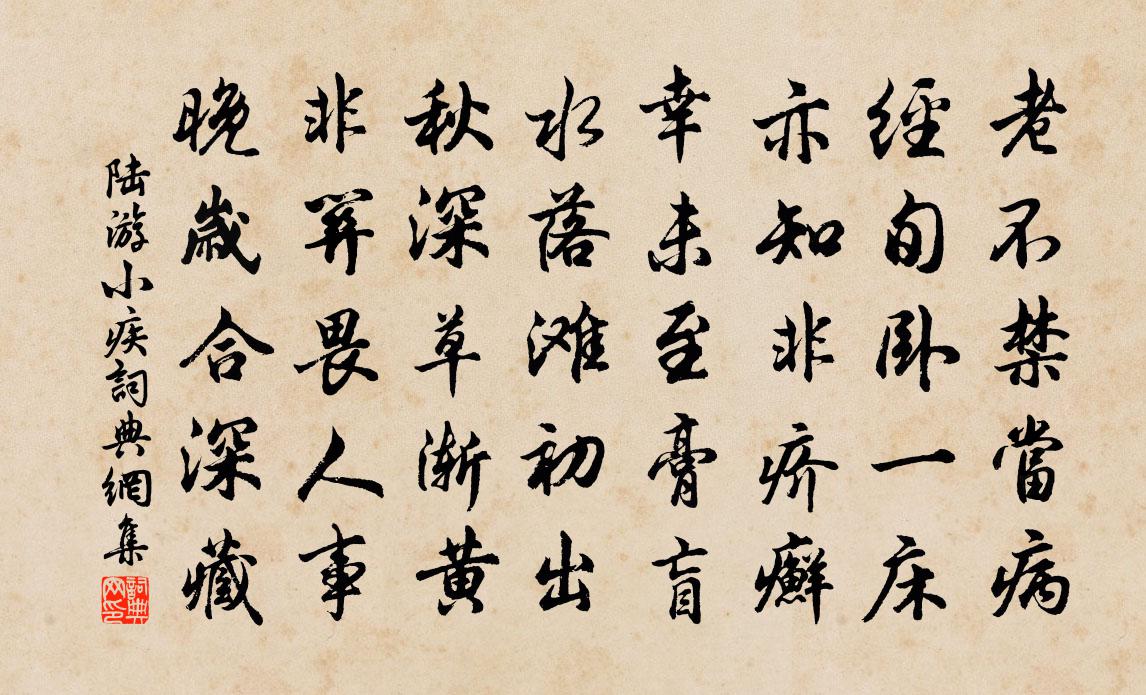 老不禁當病
經旬卧一床
亦知非疥癬
幸未至膏肓
水落滩初出
秋深草漸黄
非關畏人事
晚歲合深藏
陆游小疾詞典網集
詞典网印